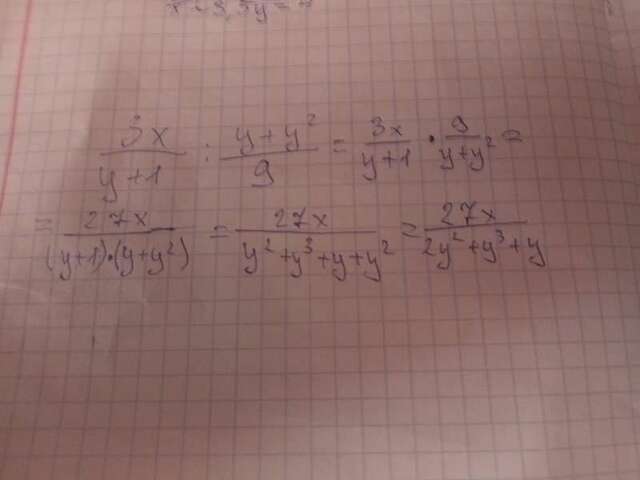 3x/(y+1) : (y+y²)/9 = 3x/(y+1) · 9/(y+y²) =
= 27x/((y+1)·(y+y²)) = 27x/(y²+y³+y+y²) = 27x/(2y²+y³+y)